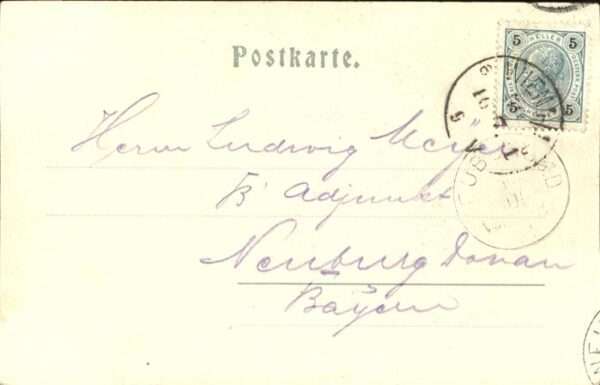 Postkarte.
5 HELLER 5
5 5
WIEN
Herrn Ludwig Meyer
Adjunkt
Neuburg Donau
Bayern